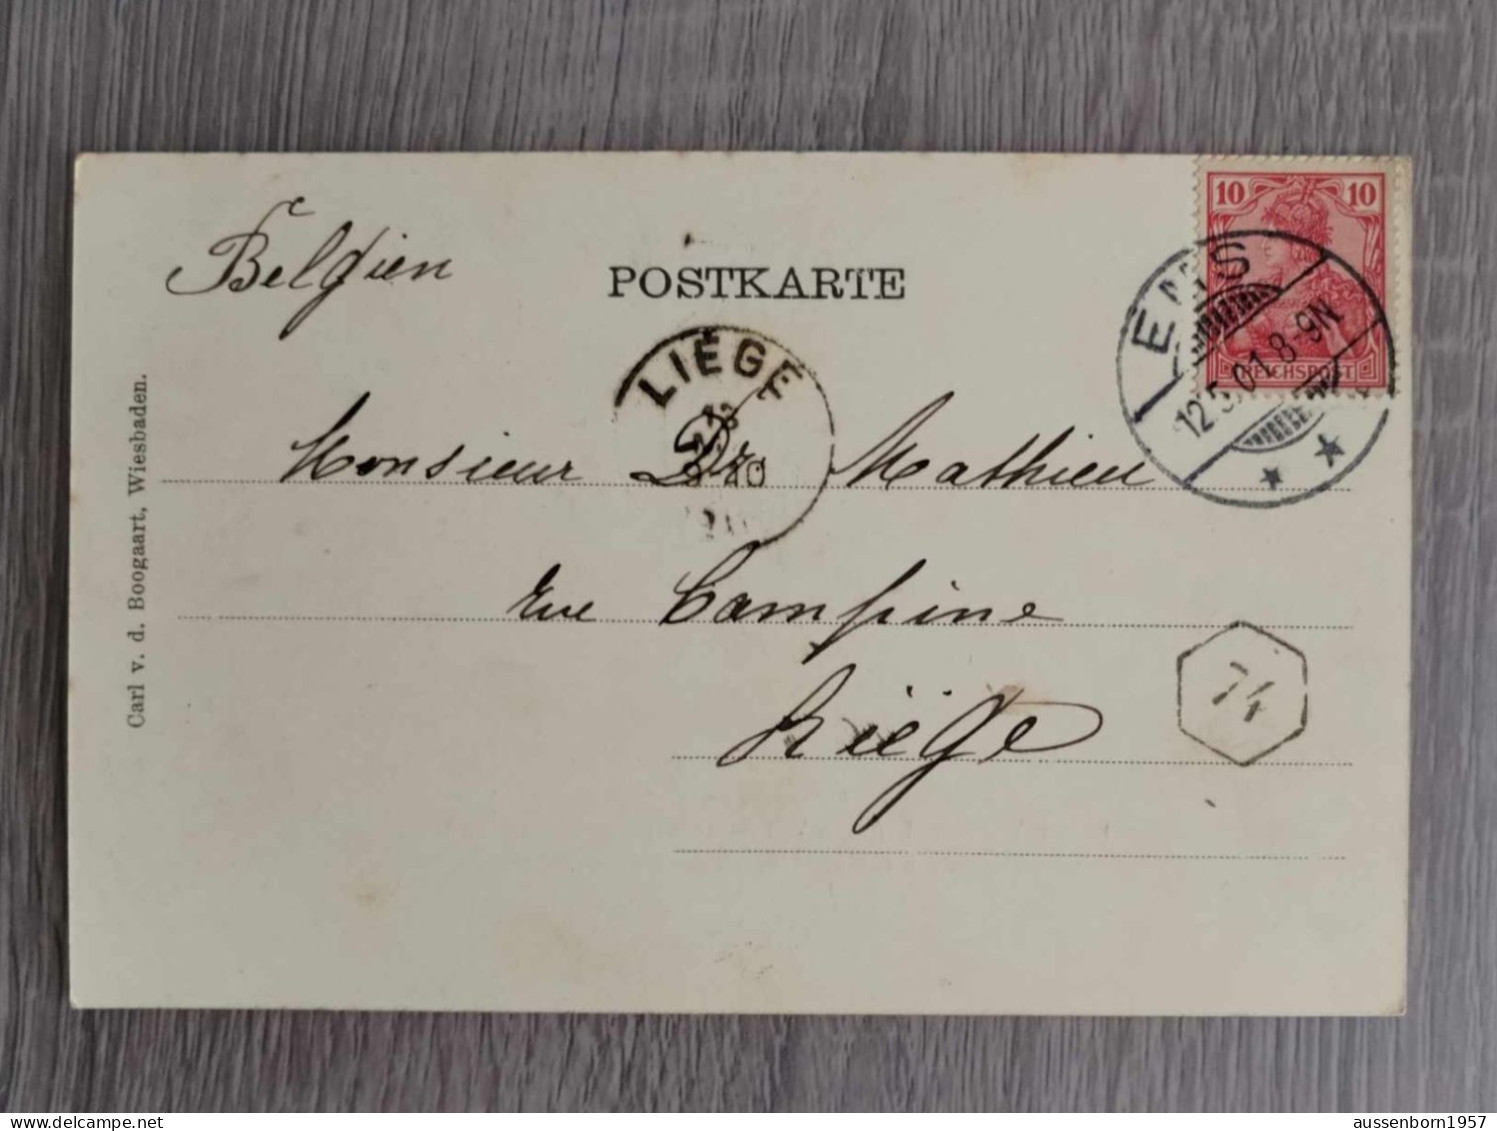 Belgien
POSTKARTE
10 10
REICHSPOST
EMS
12.5.01.8-9N
LIÉGE
Monsieur Dr. Mathieu
rue Campine
Liége
74
Carl v. d. Boogaart, Wiesbaden.
delcampe.net
aussenborn1957